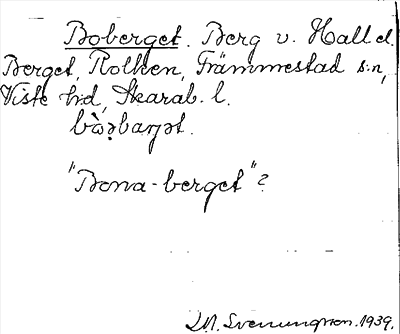 Boberget. Berg v. Hall el.
Berget, Rolken, Främmestad s:n,
Viste h:d, Skarab. l.
"Bona-berget"?
Svenungsson. 1939.